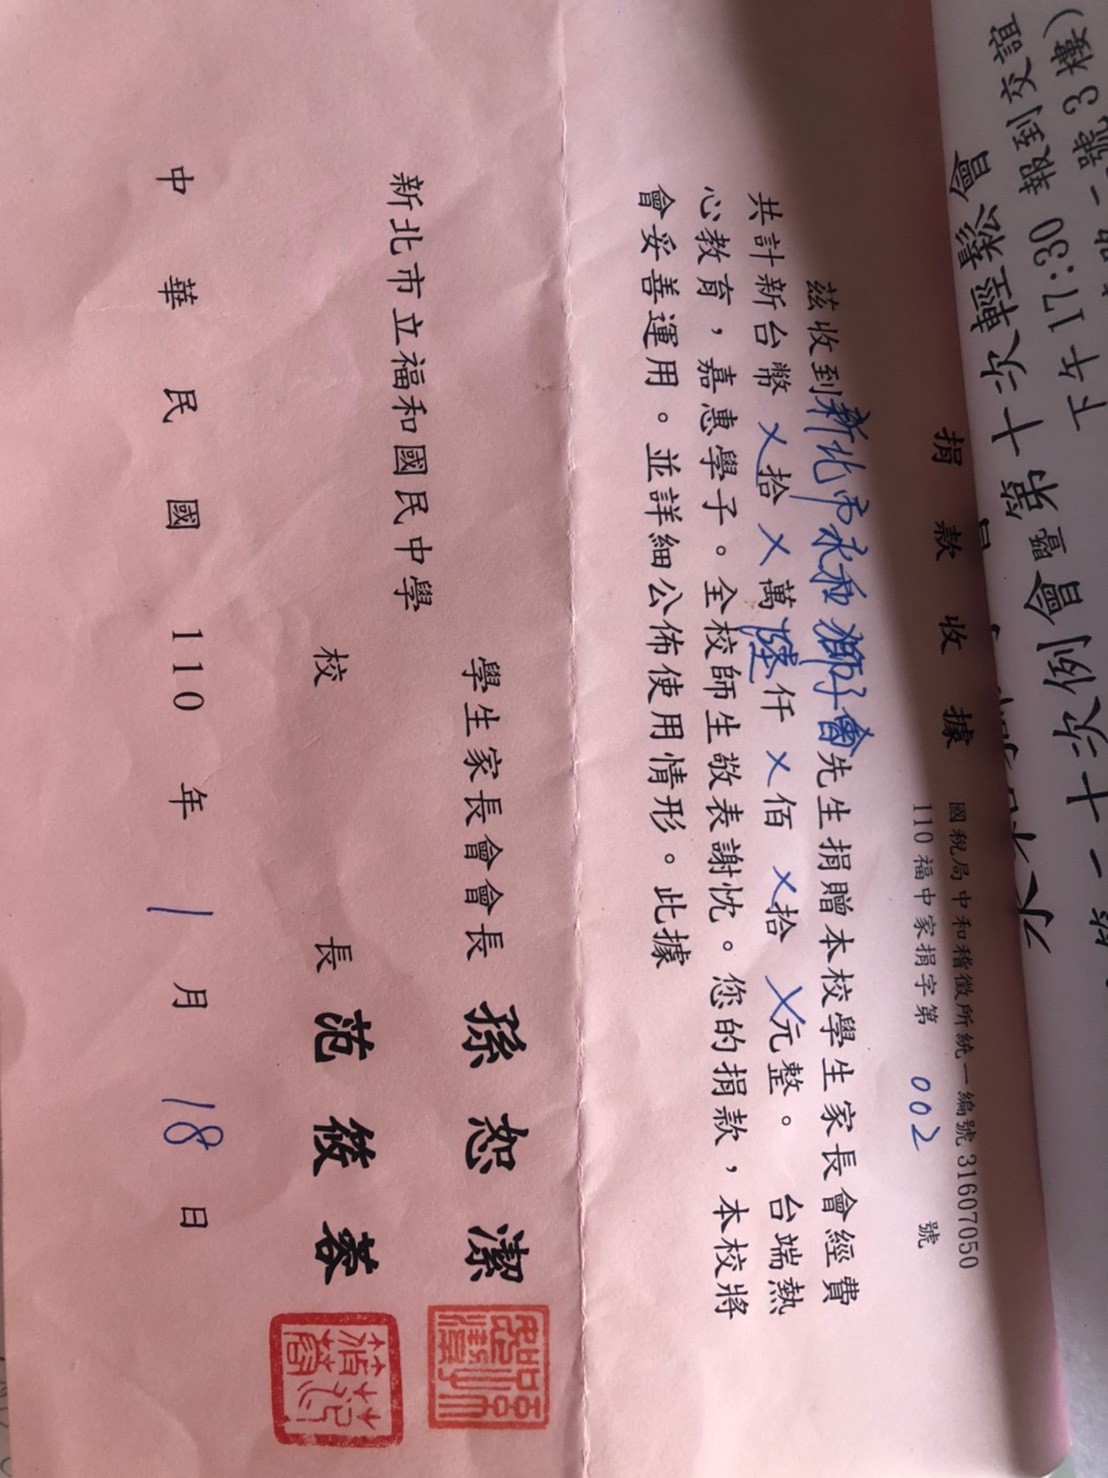 捐款收據
國稅局中和稽徵所統一編號31607050
110福中家捐字第 002 號
茲收到新北市永和獅子會先生捐贈本校學生家長會經費
共計新台幣╳拾╳萬陸仟╳佰╳拾╳元整。 台端熱
心教育，嘉惠學子。全校師生敬表謝忱。您的捐款，本校將
會妥善運用。並詳細公佈使用情形。此據
學生家長會會長 孫恕潔
新北市立福和國民中學
校長 范筱蓉
中華民國110年1月18日
次例會暨第十次輕鬆會
下午17:30 報到交誼
號3樓)